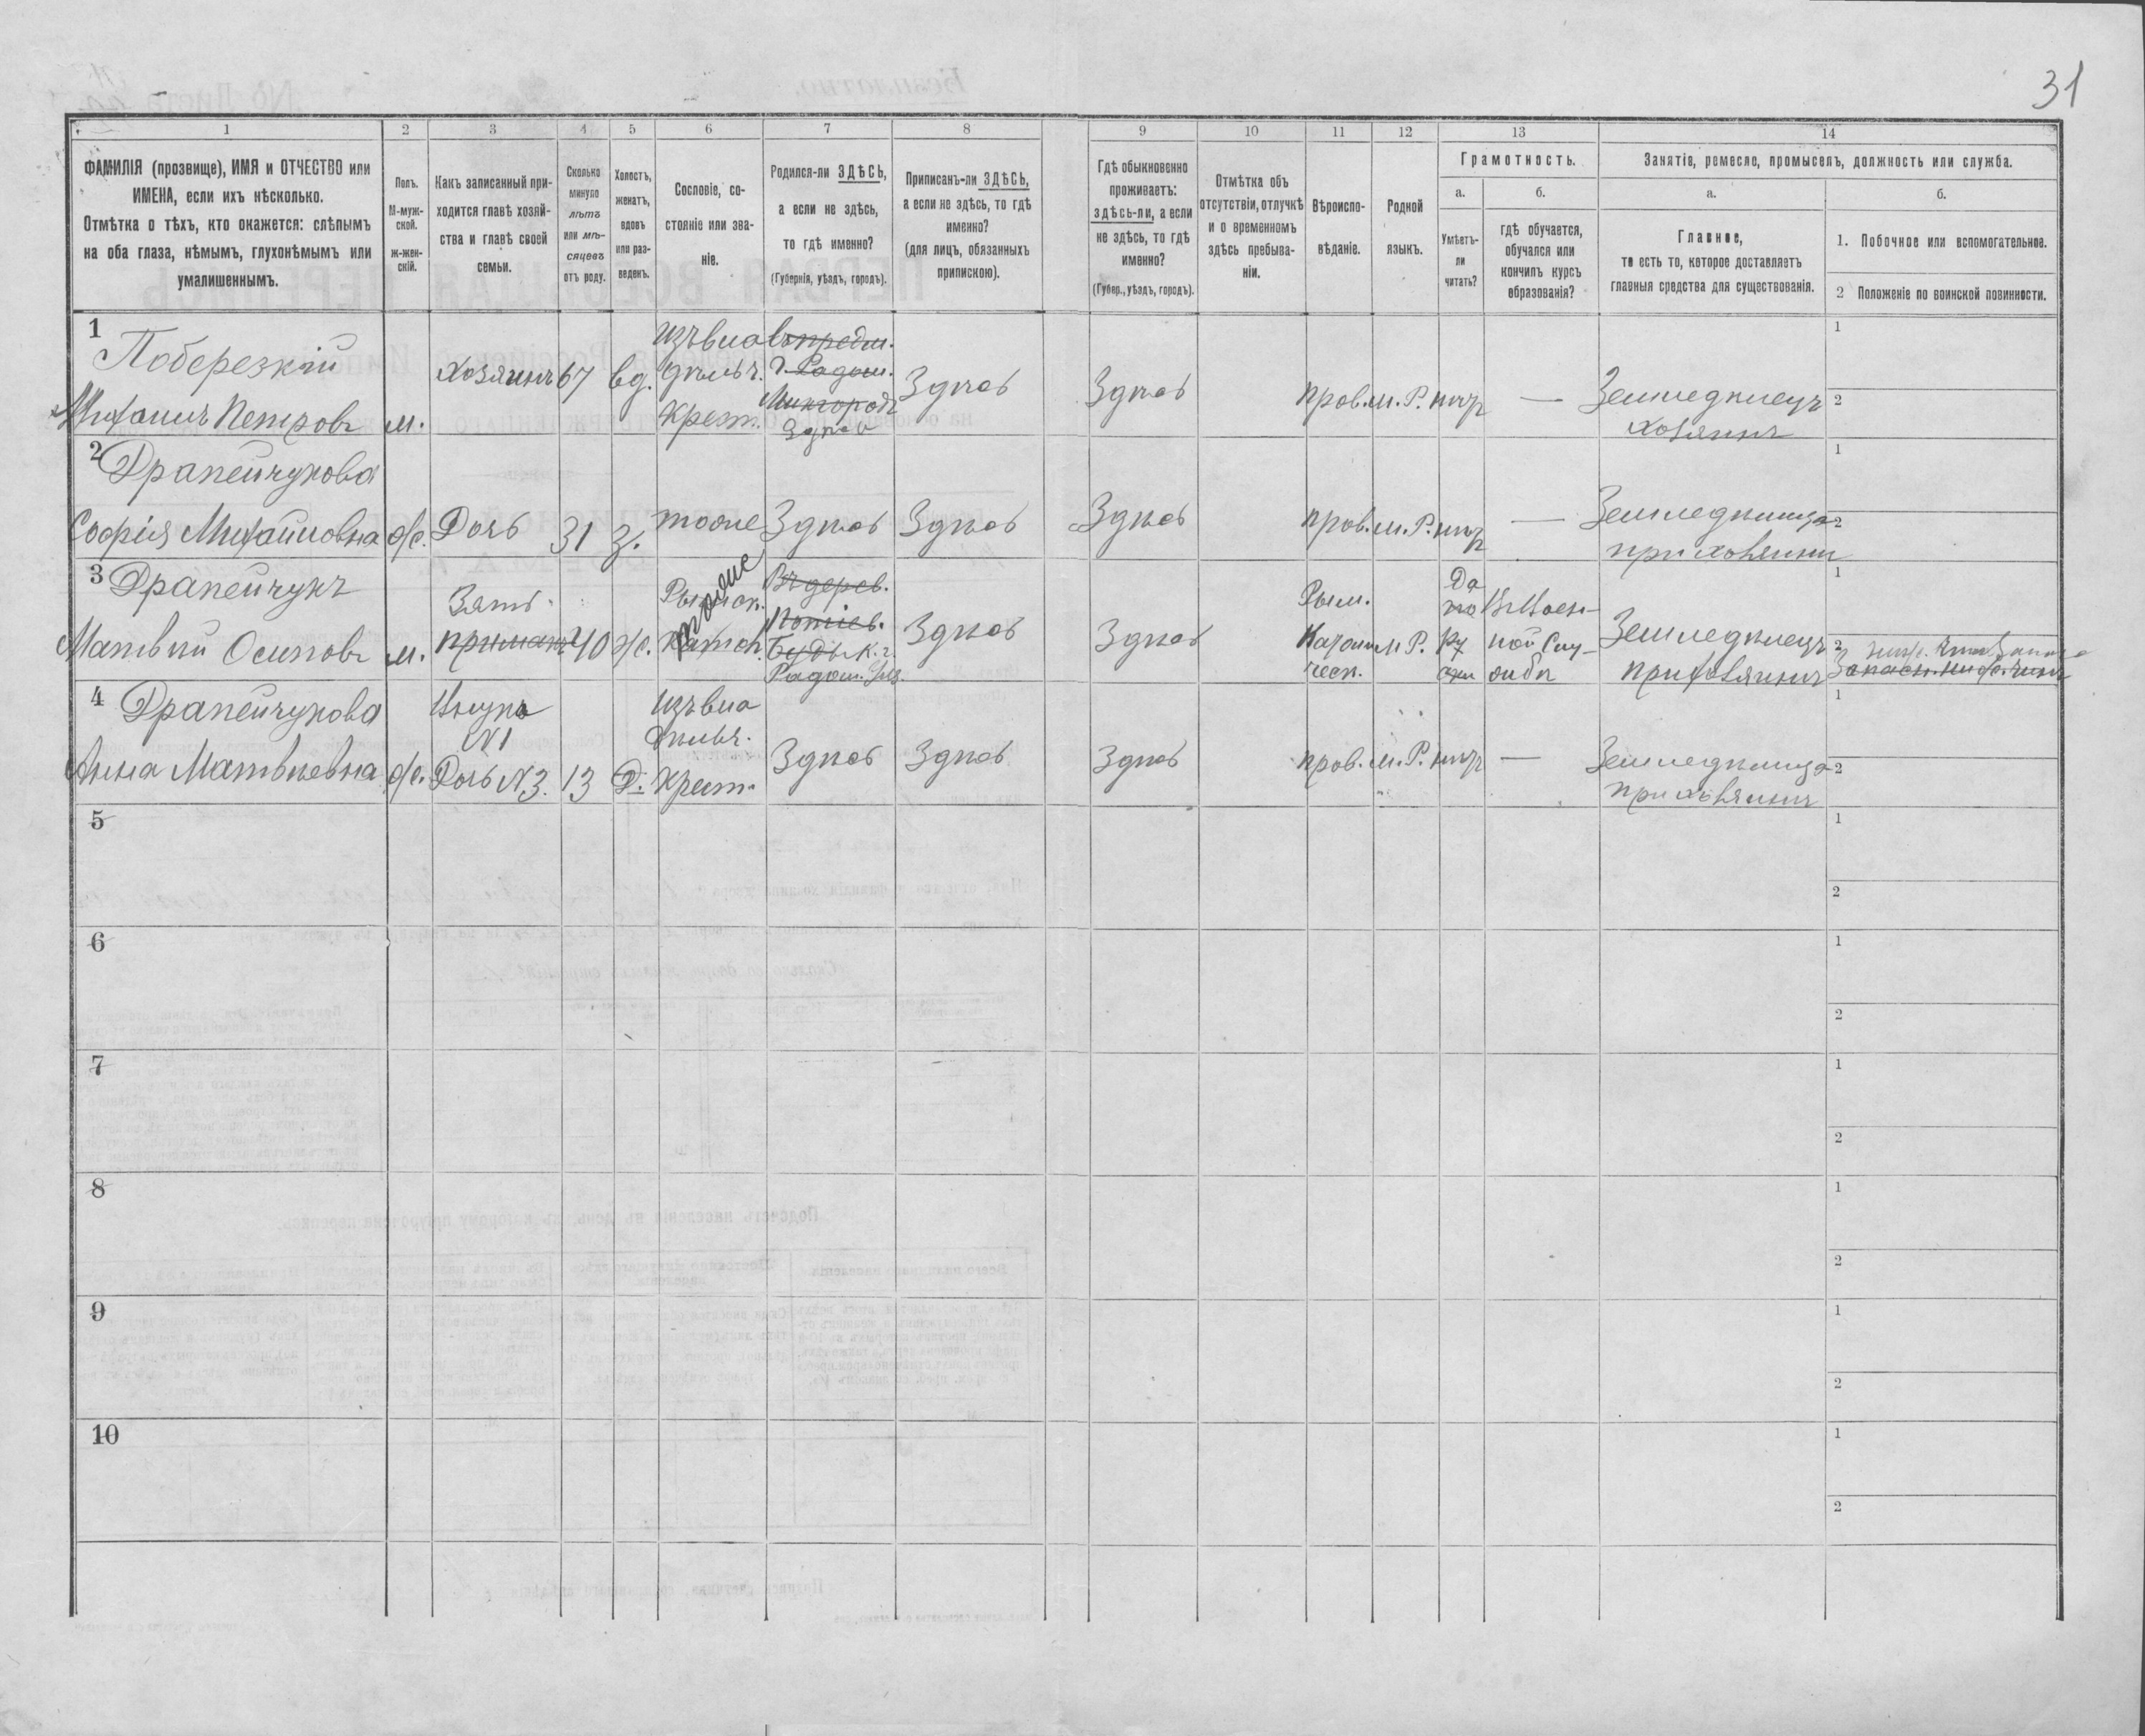 31
1 2 3 4 5 6 7 8 9 10 11 12 13 14
ФАМИЛІЯ (прозвище), ИМЯ и ОТЧЕСТВО или
ИМЕНА, если ихъ нѣсколько.
Отмѣтка о тѣхъ, кто окажется: слѣпымъ
на оба глаза, нѣмымъ, глухонѣмымъ или
умалишеннымъ.
Полъ.
М-муж-
ской.
ж-жен-
скій.
Какъ записанный при-
ходится главѣ хозяй-
ства и главѣ своей
семьи.
Сколько
минуло
лѣтъ
или мѣ-
сяцевъ
отъ роду.
Холостъ,
женатъ,
вдовъ
или раз-
веденъ.
Сословіе, со-
стояніе или зва-
ніе.
Родился-ли ЗДѢСЬ,
а если не здѣсь,
то гдѣ именно?
(Губернія, уѣздъ, городъ).
Приписанъ-ли ЗДѢСЬ,
а если не здѣсь, то гдѣ
именно?
(для лицъ, обязанныхъ
припискою).
Гдѣ обыкновенно
проживаетъ:
здѣсь-ли, а если
не здѣсь, то гдѣ
именно?
(Губер., уѣздъ, городъ).
Отмѣтка объ
отсутствіи, отлучкѣ
и о временномъ
здѣсь пребыва-
ніи.
Вѣроиспо-
вѣданіе.
Родной
языкъ.
Грамотность.
а.
Умѣетъ-
ли
читать?
б.
гдѣ обучается,
обучался или
кончилъ курсъ
образованія?
Занятіе, ремесло, промыселъ, должность или служба.
а.
Главное,
то есть то, которое доставляетъ
главныя средства для существованія.
б.
1. Побочное или вспомогательное.
2 Положеніе по воинской повинности.
1
Поберезкій
Михаилъ Петровъ
м.
Хозяинъ
67
вд.
изъ вла
дѣльч.
Крест.
Здѣсь
Здѣсь
Здѣсь
прав.
м. Р.
нѣтъ
—
Земледѣлецъ
хозяинъ
1
2
2
Драпейчукова
Софія Михайловна
ж.
Дочь
31
з.
тоже
Здѣсь
Здѣсь
Здѣсь
прав.
м. Р.
нѣтъ
—
Земледѣлица
при хозяинѣ
1
2
3
Драпейчукъ
Матвѣй Осиповъ
м.
Зять
примакъ
40
ж.
тоже
Въ дерев.
Будык. г.
Радом. Уѣз.
Здѣсь
Здѣсь
Рим.
Катол
ческ.
м Р.
Да
по
ру
ски
В Воен-
ной Слу-
жбѣ
Земледѣлецъ
при хозяинѣ
1
2
Запасн. ниж. чинъ
4
Драпейчукова
Анна Матвѣевна
ж.
Внука
N 1
Дочь N 3.
13
Д.
изъ вла
дѣльч.
Крест.
Здѣсь
Здѣсь
Здѣсь
прав.
м. Р.
нѣтъ
—
Земледѣлица
при хозяинѣ
1
2
5
1
2
6
1
2
7
1
2
8
1
2
9
1
2
10
1
2